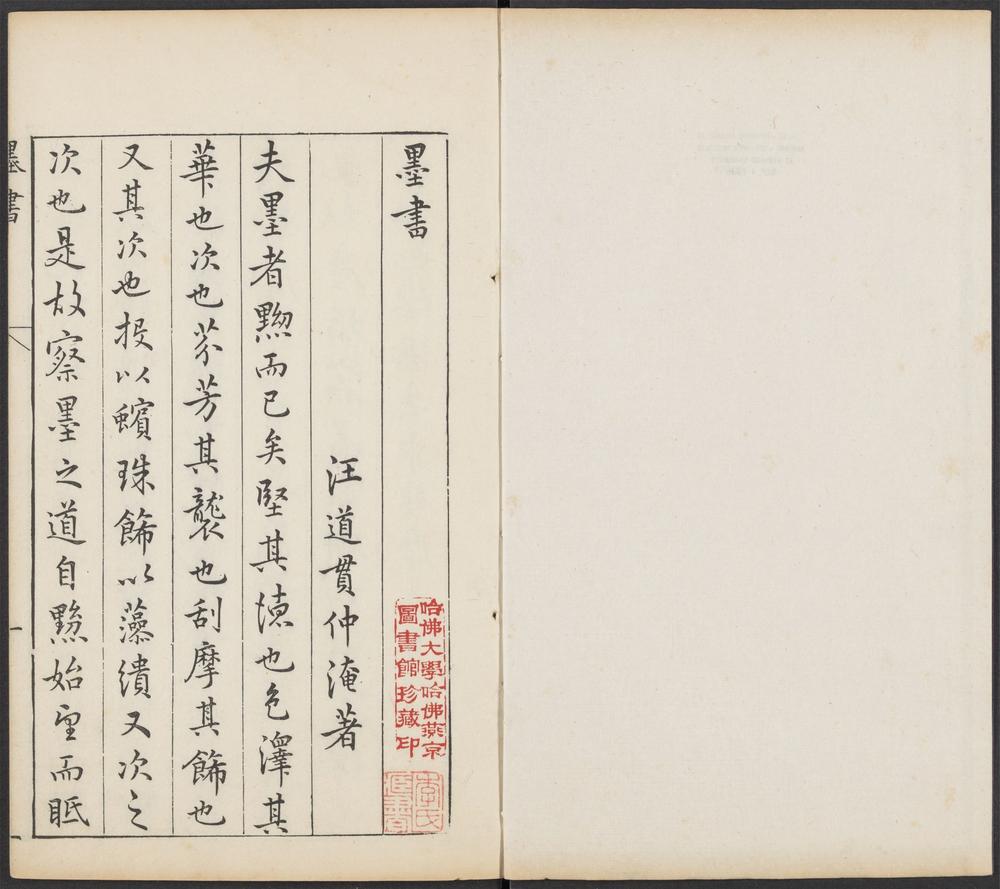 墨書
汪道貫仲淹著
夫墨者黝而已矣堅其悳也色澤其
華也次也芬芳其襲也刮摩其餙也
又其次也投以蠙珠餙以藻繢又次之
次也是故察墨之道自黝始望而眂
墨書
哈佛大學哈佛燕京
圖書館珍藏印
李氏